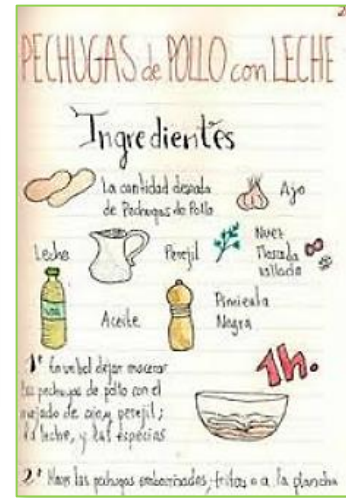 2
PECHUGAS de POLLO con LECHE
Ingredientes
La cantidad deseada
de Pechugas de Pollo
Ajo
Leche
Perejil
Nuez
Moscada
rallada
Aceite
Pimienta
Negra
1º En un bol dejar macerar
las pechugas de pollo con el
majado de ajo y perejil;
la leche, y las especias
1h.
2º Hacer las pechugas enharinadas, fritas o a la plancha